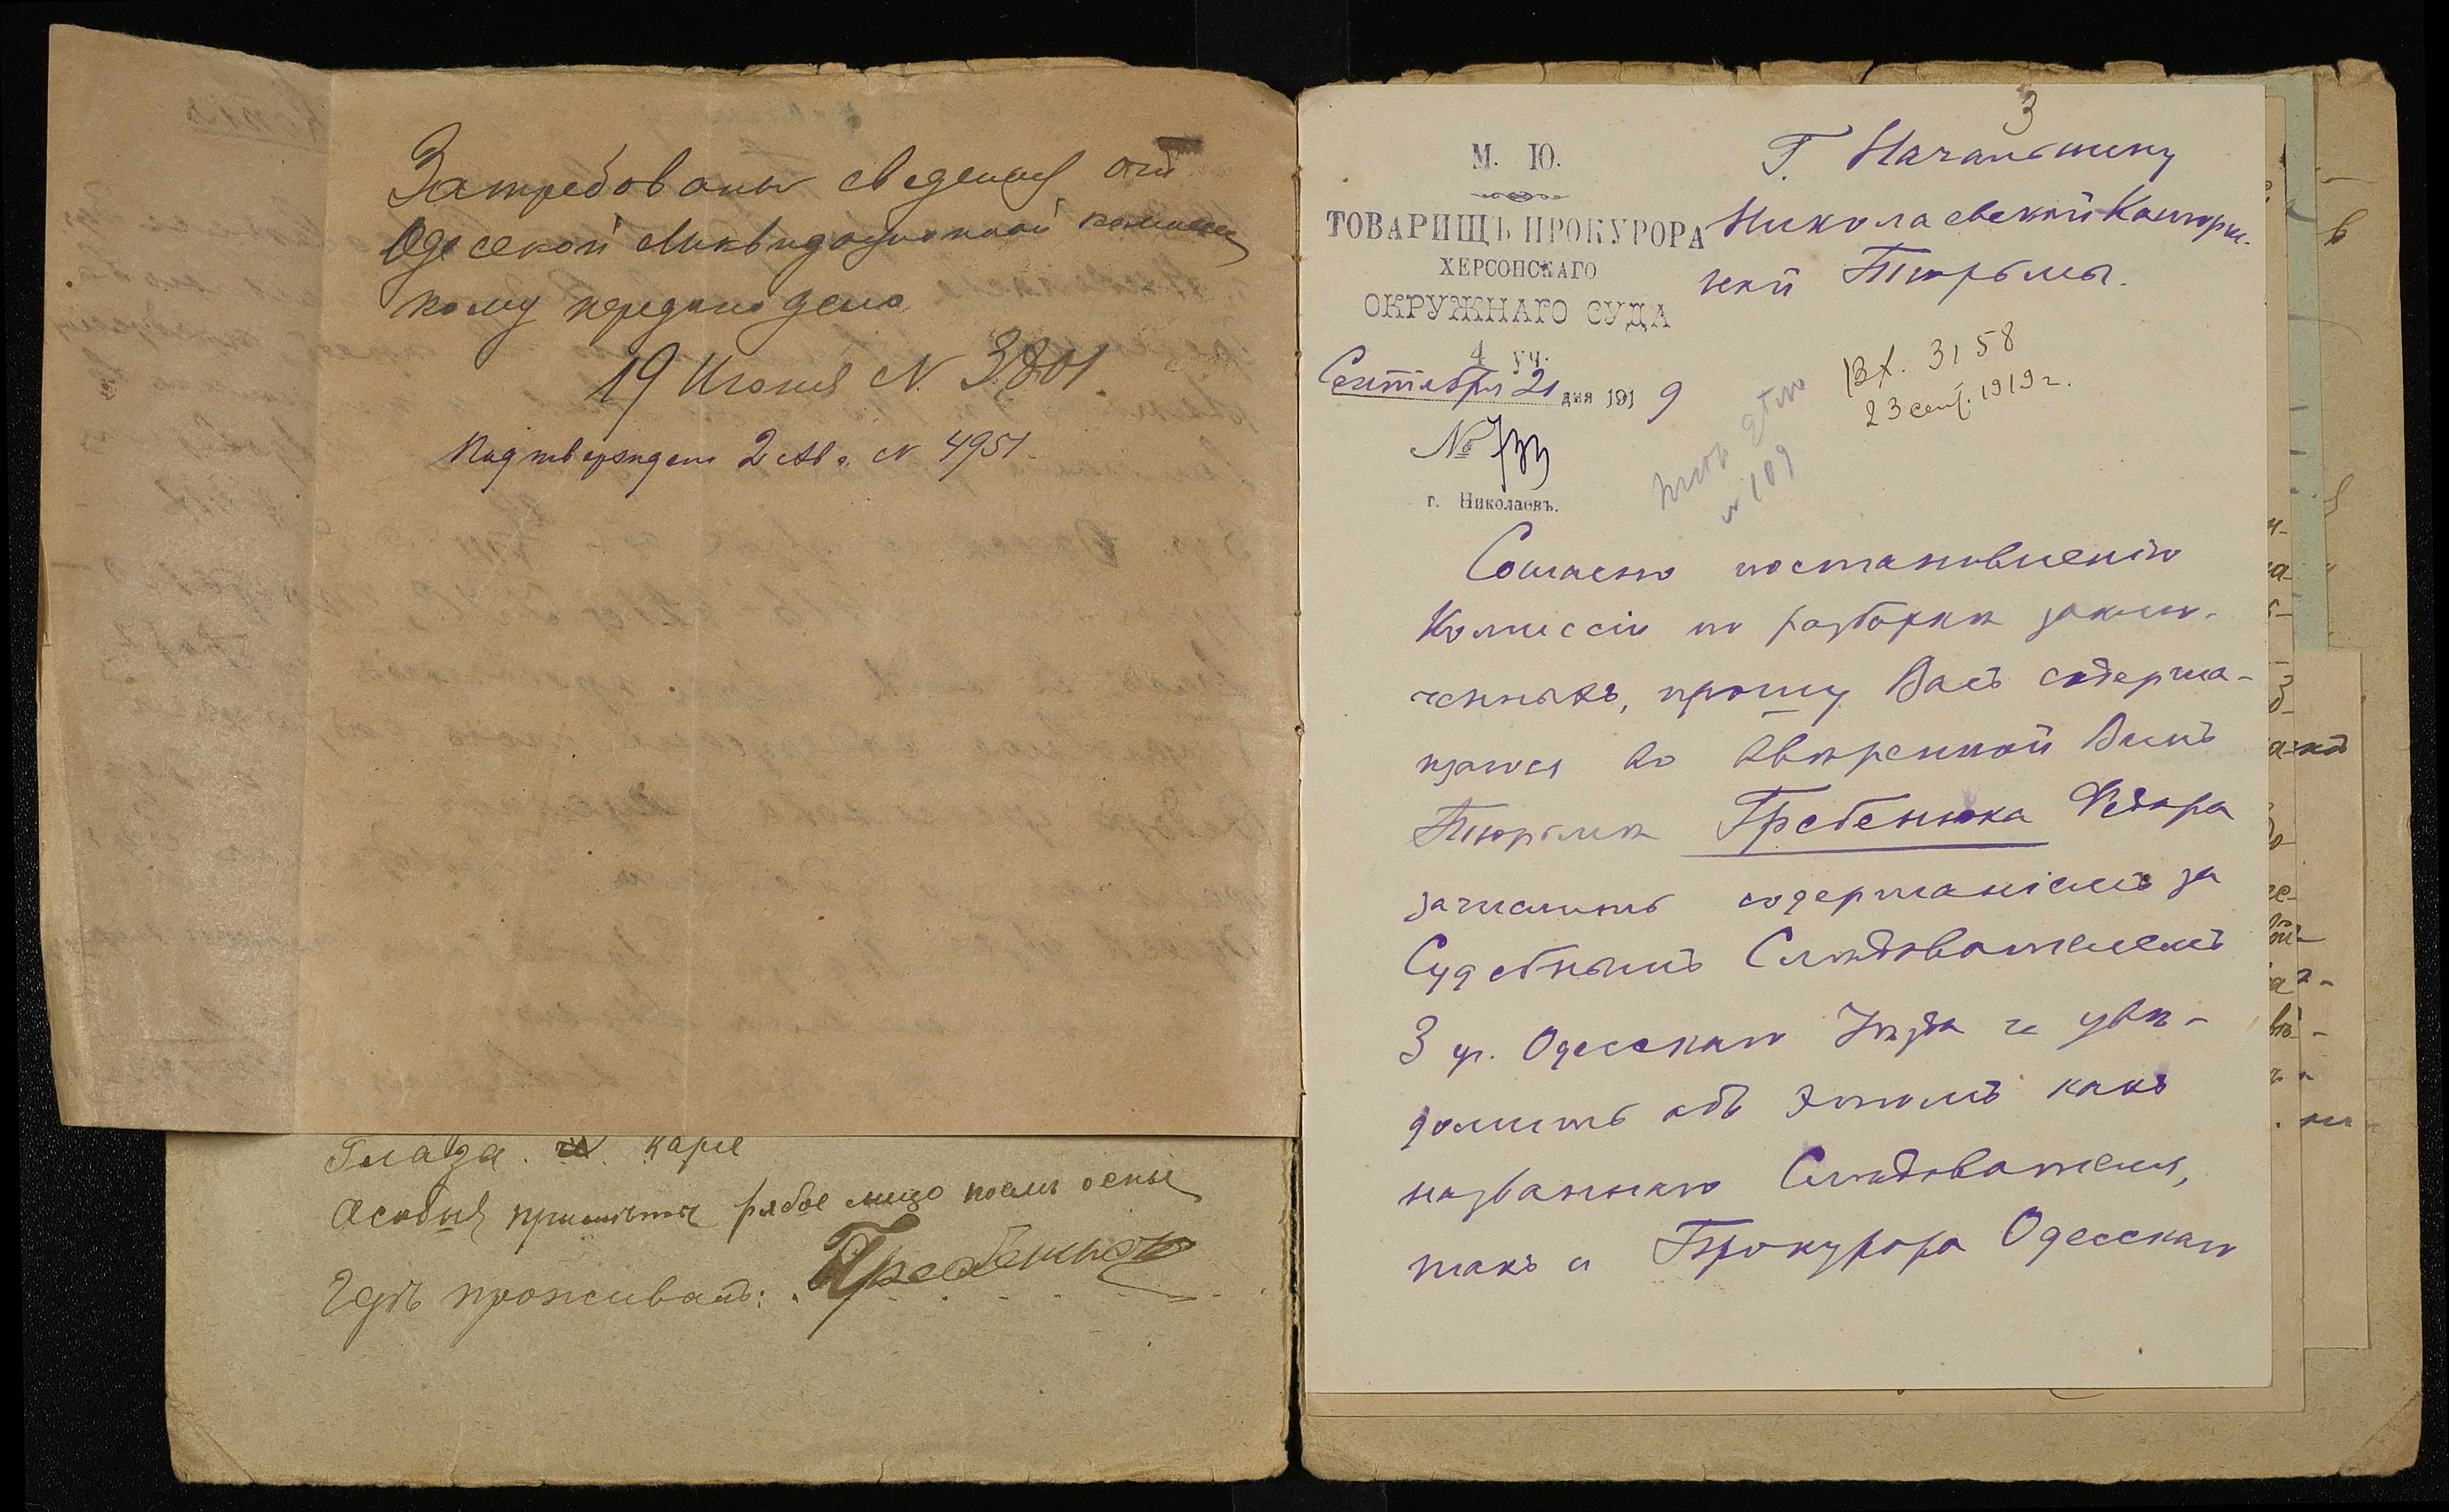 Затребованы сведения от
Одесской Ликвидационной комиссии
кому передано дело
19 Июня N. 3801
Подтверждено 2 Авг. N 4951.
Глаза карие
Особыя приметы рябое лицо после оспы
Где проживал: Гребенюк
3
М. Ю.
ТОВАРИЩЪ ПРОКУРОРА
ХЕРСОНСКАГО
ОКРУЖНАГО СУДА
4 уч.
Сентября 21 дня 1919
№ 733
г. Николаевъ.
Г. Начальнику
Николаевской Каторж-
ной Тюрьмы.
Вх. 3158
23 сент. 1919 г.
N 109
Согласно постановленію
Комиссіи по разборкѣ заклю-
ченныхъ, прошу Васъ содержа-
щагося во ввѣренной Вамъ
Тюрьмѣ Гребенюка Федора
зачислить содержаніемъ за
Судебнымъ Слѣдователемъ
3 уч. Одесскаго Уѣзда и увѣ-
домить объ этомъ какъ
названнаго Слѣдователя,
такъ и Прокурора Одесскаго